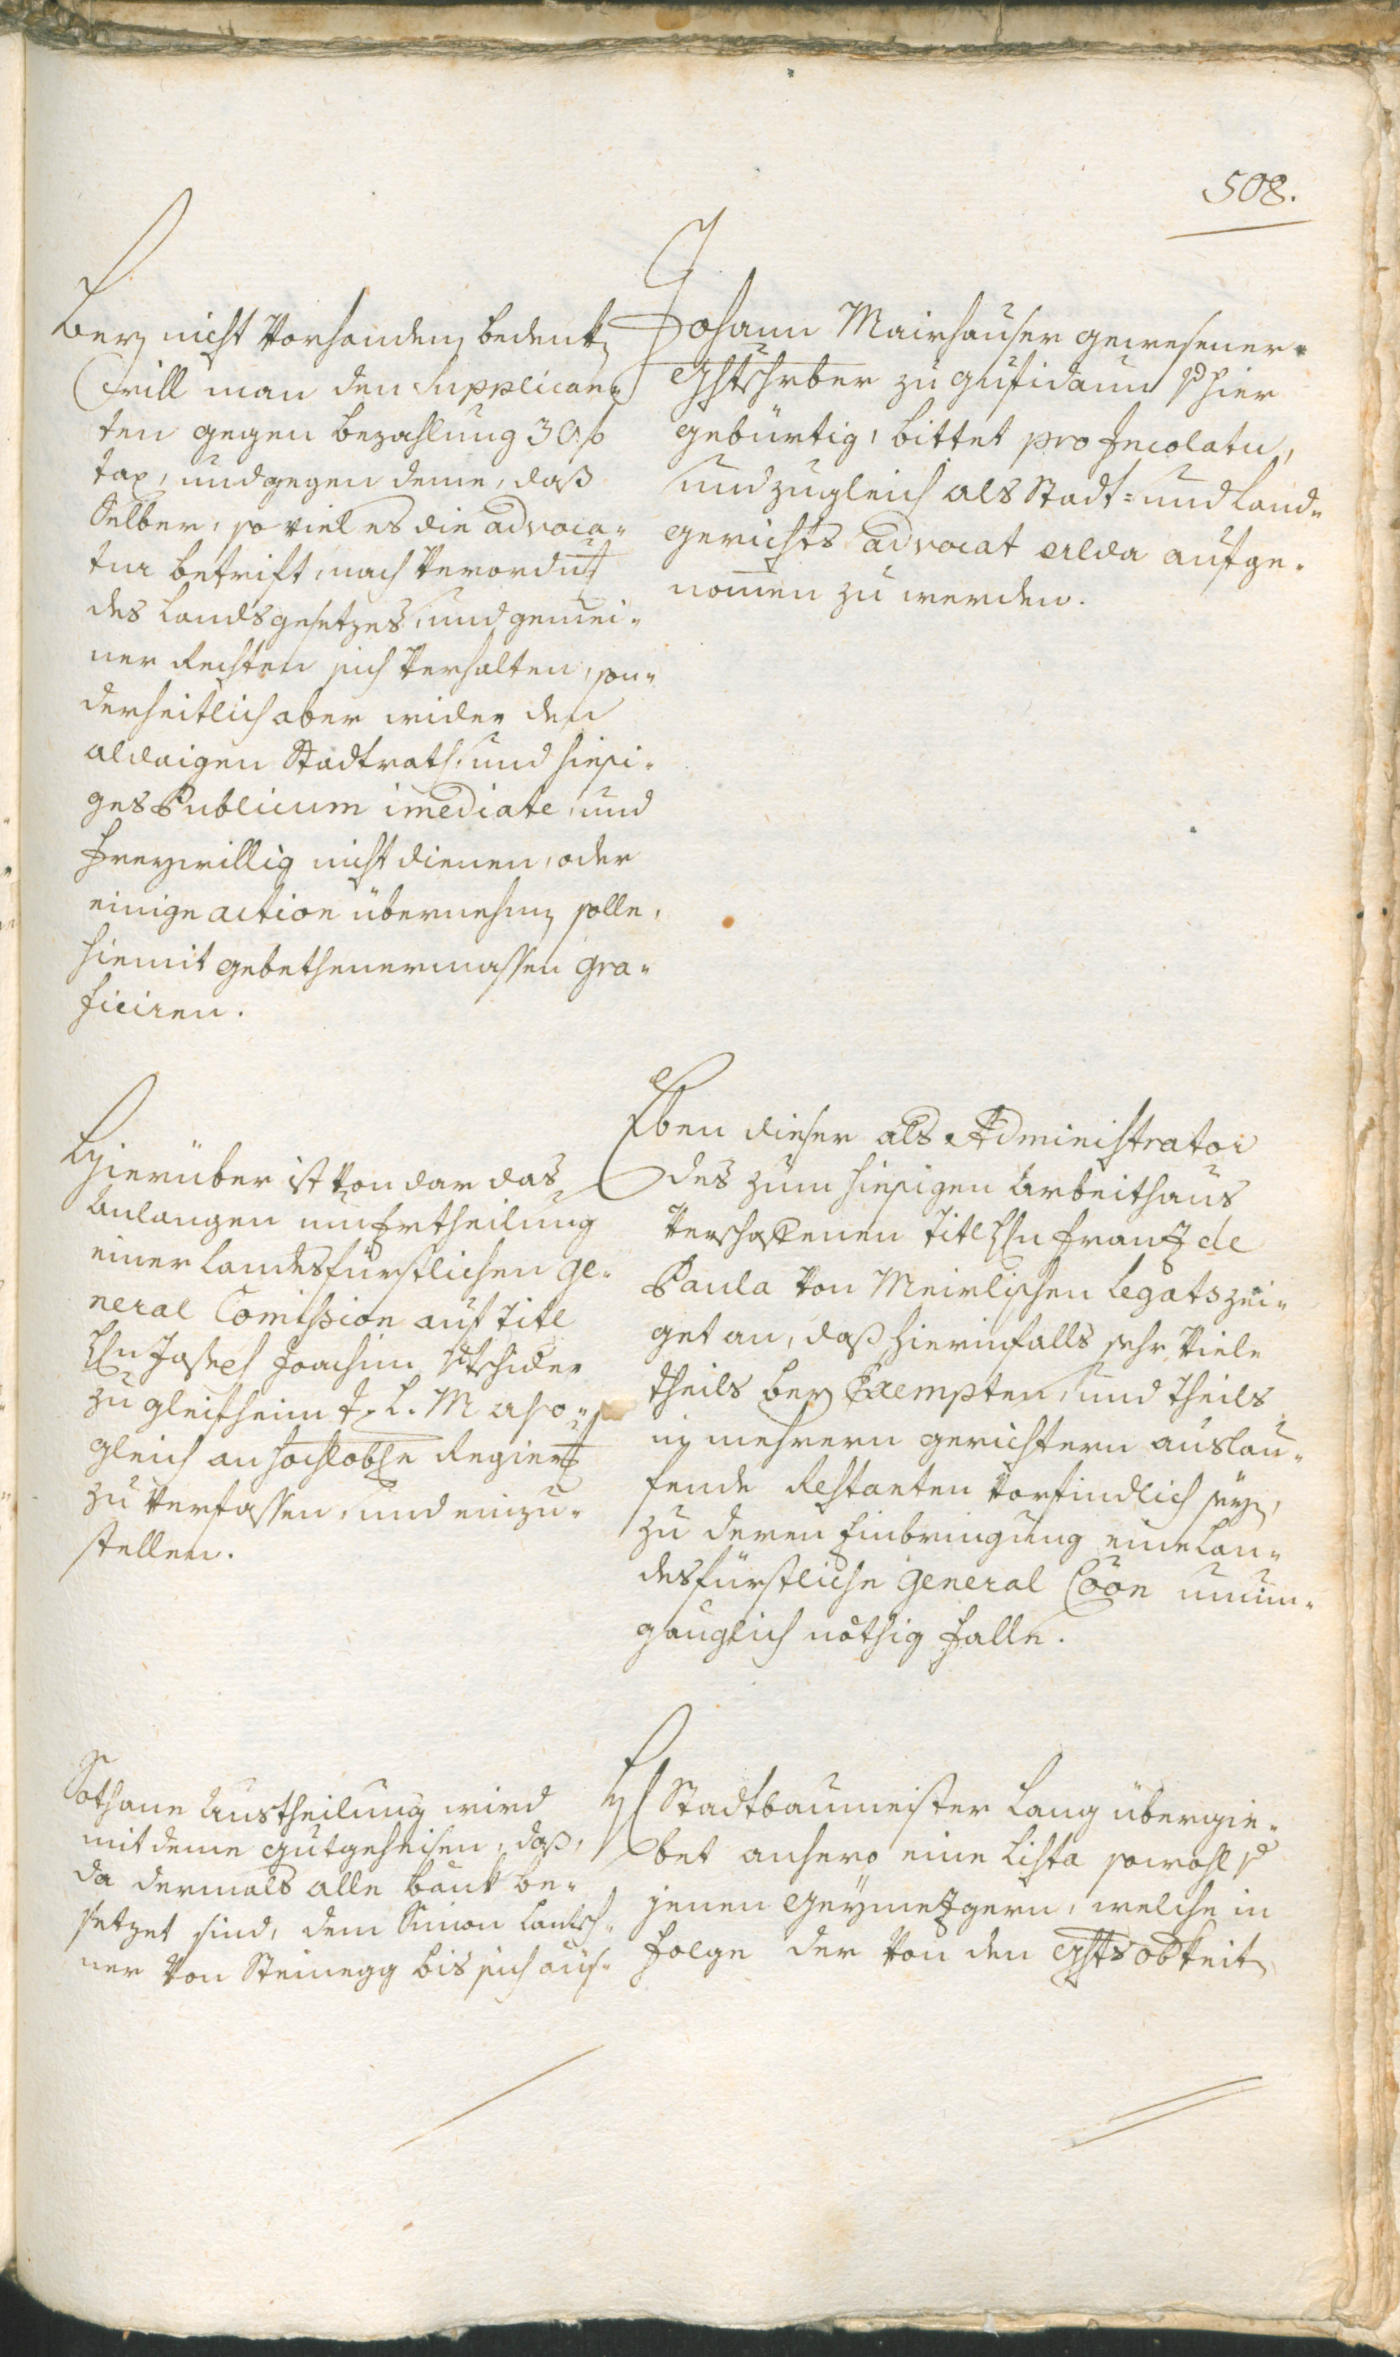 508.
Bey nicht vorhanden bedenk
will man den Supplican-
ten gegen bezahlung 30 f
tax, und gegen deme, daß
Selber, so viel es die advoca-
tur betrift, nach Verordnung
des Landsgesetzes, und gemei-
ner Rechten sich verhalten, son-
derheitlich aber wider den
aldaigen Stadtrath, und hiesi-
ges Publicum imediate, und
freywillig nicht dienen, oder
einige action übernehmen solle,
hiemit gebethenermassen gra-
ficiren.
Johann Mairhauser gewesener
Ghtschrber zu gufidaun hier
gebürtig, bittet pro Incolatu,
und zugleich als Stadt- und Land-
gerichts advocat alda aufge-
nomen zu werden.
Hierüber ist von dar das
Anlangen um Ertheilung
einer Landesfürstlichen ge-
neral Comission auf Titl
Hrn Joseph Joachim
zu gleifheim L. M also-
gleich an hochlobhe Regierung
zu verfassen, und einzu-
stellen.
Eben dieser als Administrator
des zum hiesigen Arbeithaus
verschafenen Titl Hrn Frantz de
Paula von Meirlischen Legats zei-
get an, daß hierinfalls sehr viele
theils bey Exempten, und theils
in mehrern gerichtern auslau-
fende Restanten vorfindlich seyn,
zu deren Einbringung eine Lan-
desfürstliche General Coon unum-
gänglich nöthig falle.
Sothane Austheilung wird
mit deme gutgeheisen, daß,
da dermals alle bänk be-
setzet sind, dem Simon Lantsch-
ner von Steinegg bis sich aus-
H Stadtbaumeister Lang übergie-
bet anhero eine Lista sowohl
jenen geymetzgern, welche in
folge der von den ghts obkeit